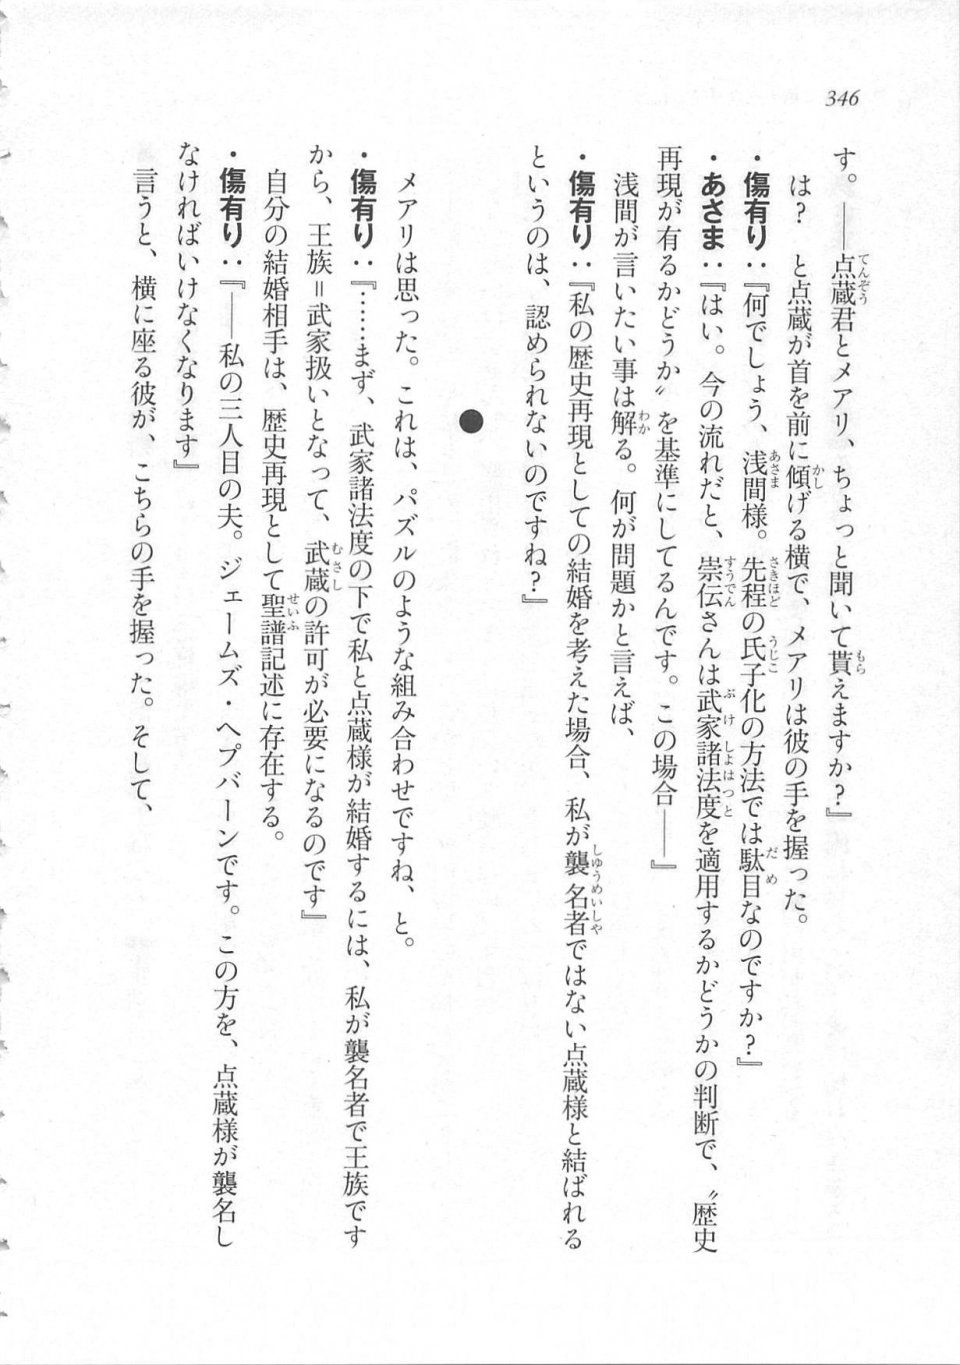 346
す。――点蔵君とメアリ、ちょっと聞いて貰えますか？』
は？　と点蔵が首を前に傾げる横で、メアリは彼の手を握った。
・傷有り：『何でしょう、浅間様。先程の氏子化の方法では駄目なのですか？』
・あさま：『はい。今の流れだと、崇伝さんは武家諸法度を適用するかどうかの判断で、〝歴史
再現が有るかどうか〟を基準にしてるんです。この場合――』
浅間が言いたい事は解る。何が問題かと言えば、
・傷有り：『私の歴史再現としての結婚を考えた場合、私が襲名者ではない点蔵様と結ばれる
というのは、認められないのですね？』
●
メアリは思った。これは、パズルのような組み合わせですね、と。
・傷有り：『……まず、武家諸法度の下で私と点蔵様が結婚するには、私が襲名者で王族です
から、王族＝武家扱いとなって、武蔵の許可が必要になるのです』
自分の結婚相手は、歴史再現として聖譜記述に存在する。
・傷有り：『――私の三人目の夫。ジェームズ・ヘプバーンです。この方を、点蔵様が襲名し
なければいけなくなります』
言うと、横に座る彼が、こちらの手を握った。そして、